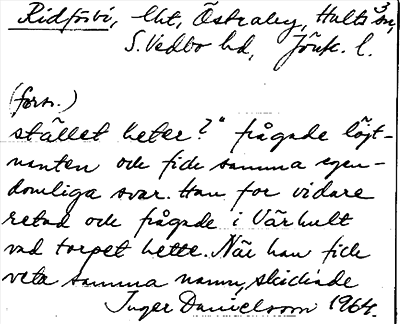 Ridförbi, lht, Östraby, Hults sn,
S. Vedbo hd, Jönk. l.
(forts.)
stället heter?" frågade löjt-
nanten och fick samma egen-
domliga svar. Han for vidare
retad och frågade i Värhult
vad torpet hette. När han fick
veta samma namn, skickade
Inger Danielsson 1964.